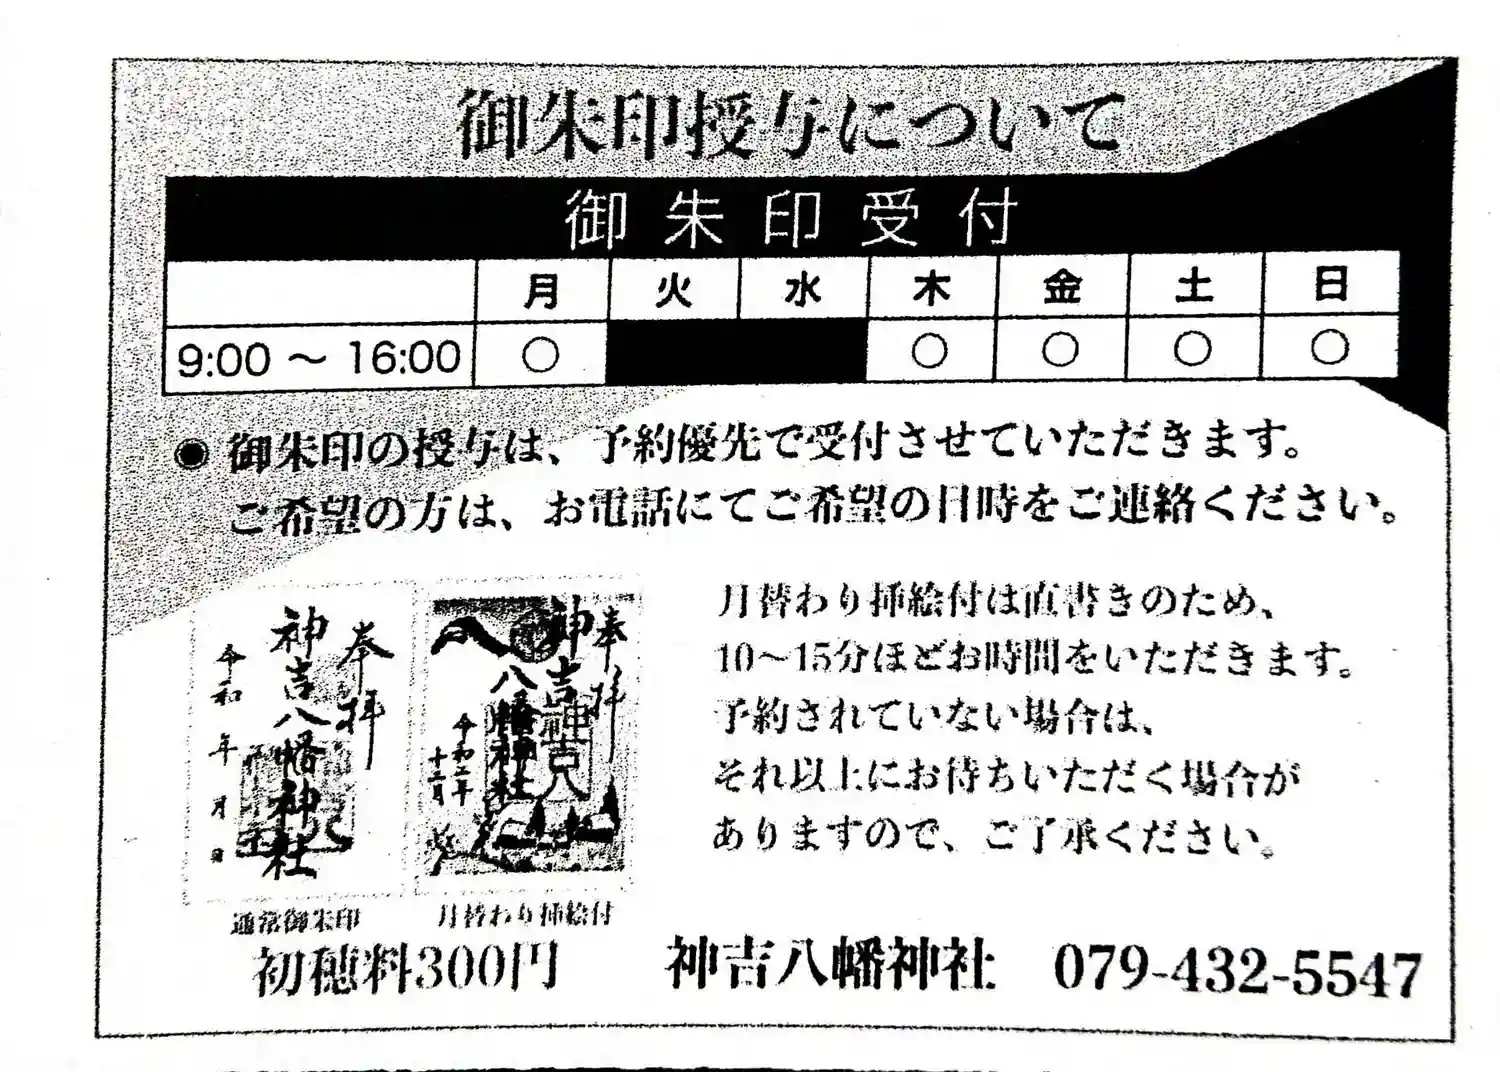 御朱印授与について
御朱印受付
月 火 水 木 金 土 日
9:00 ～ 16:00 ○ ○ ○ ○ ○
◉ 御朱印の授与は、予約優先で受付させていただきます。
ご希望の方は、お電話にてご希望の日時をご連絡ください。
奉拝
神吉八幡神社
令和 年 月 日
奉拝
神吉八幡神社
神吉八
令和二年
十二月
月替わり挿絵付は直書きのため、
10～15分ほどお時間をいただきます。
予約されていない場合は、
それ以上にお待ちいただく場合が
ありますので、ご了承ください。
通常御朱印
月替わり挿絵付
初穂料300円
神吉八幡神社 079-432-5547